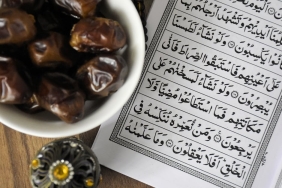 أَيْدِيهِمْ وَتَشْهَدُ أَرْجُلُهُمْ بِمَا
يَكْسِبُونَ ۝ وَلَوْ نَشَاءُ لَطَمَسْنَا
عَلَى أَعْيُنِهِمْ فَاسْتَبَقُوا الصِّرَاطَ فَأَنَّى
يُبْصِرُونَ ۝ وَلَوْ نَشَاءُ لَمَسَخْنَاهُمْ عَلَى
مَكَانَتِهِمْ فَمَا اسْتَطَاعُوا مُضِيًّا وَلَا
يَرْجِعُونَ ۝ وَمَنْ نُعَمِّرْهُ نُنَكِّسْهُ فِي
الْخَلْقِ أَفَلَا يَعْقِلُونَ ۝ وَمَا عَلَّمْنَاهُ